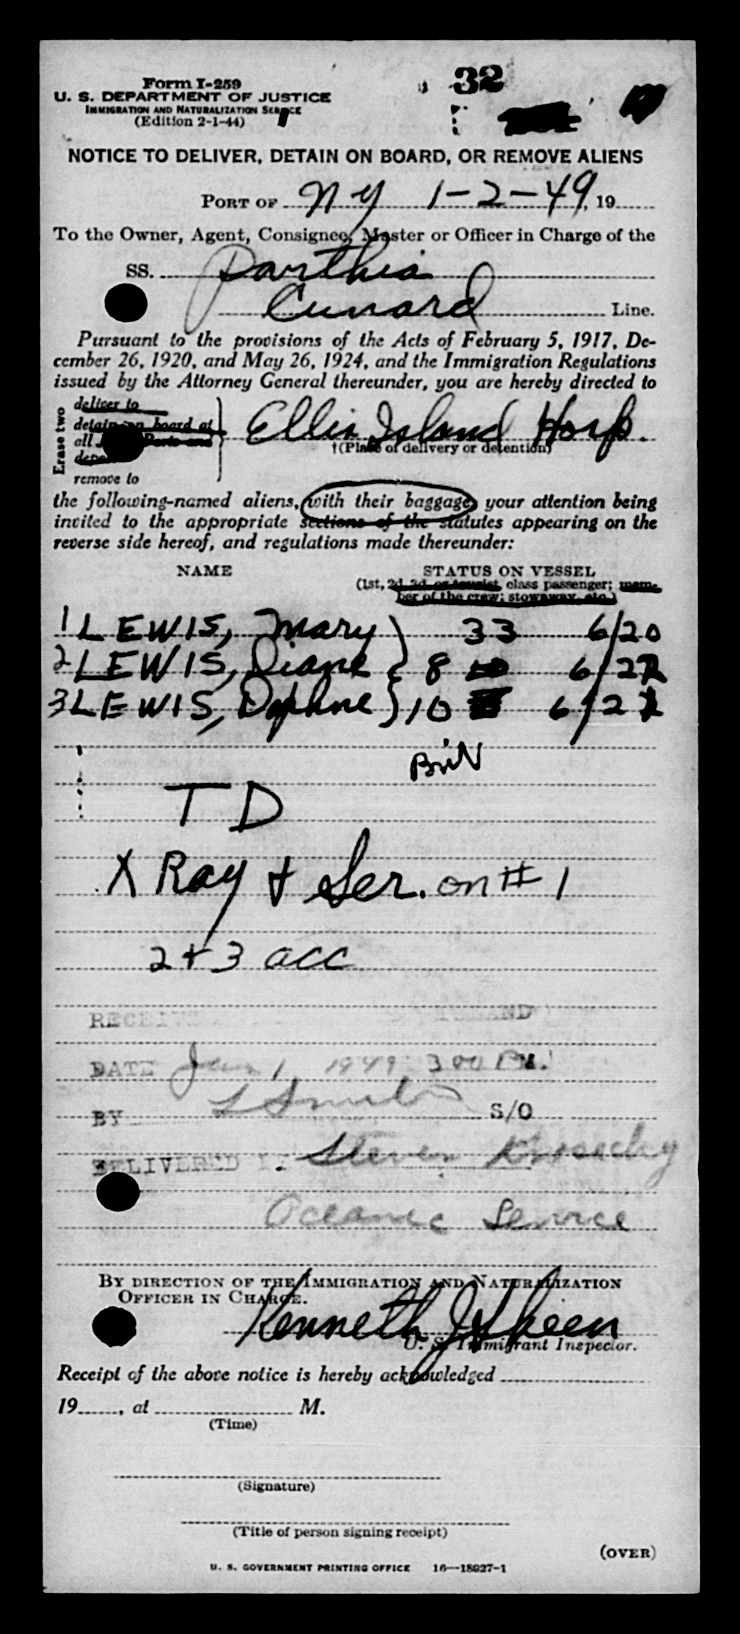 32
Form I-259
U. S. DEPARTMENT OF JUSTICE
IMMIGRATION AND NATURALIZATION SERVICE
(Edition 2-1-44)
NOTICE TO DELIVER, DETAIN ON BOARD, OR REMOVE ALIENS
PORT OF NY 1-2-49, 19
To the Owner, Agent, Consignee, Master or Officer in Charge of the
SS. Parthia
Cunard Line.
Pursuant to the provisions of the Acts of February 5, 1917, De-
cember 26, 1920, and May 26, 1924, and the Immigration Regulations
issued by the Attorney General thereunder, you are hereby directed to
Erase two
deliver to
detain on board at
all
remove to
Ellis Island Hosp.
†(Place of delivery or detention)
the following-named aliens, with their baggage, your attention being
invited to the appropriate sections of the statutes appearing on the
reverse side hereof, and regulations made thereunder:
NAME STATUS ON VESSEL
(1st, 2d, 3d, or tourist class passenger; mem-
ber of the crew; stowaway, etc.)
1 LEWIS, Mary 33 6/20
2 LEWIS, Diane 8 6/22
3 LEWIS, Daphne 10 6/22
Brit
TD
X Ray + Ser. on #1
2+3 acc
RECEIVED ISLAND
DATE Jan 1, 1949 3 00 P.M.
BY S/O
DELIVERED Steven
Oceanic Service
BY DIRECTION OF THE IMMIGRATION AND NATURALIZATION
OFFICER IN CHARGE.
Kenneth J Sheen
U. S. Immigrant Inspector.
Receipt of the above notice is hereby acknowledged
19, at M.
(Time)
(Signature)
(Title of person signing receipt)
(OVER)
U. S. GOVERNMENT PRINTING OFFICE 16—18927-1